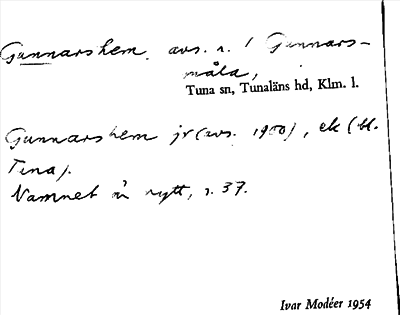 Gunnarshem, avs. n. 1 Gunnars-
måla,
Tuna sn, Tunaläns hd, Klm. l.
Gunnarshem jr (avs. 1900), ek (bl.
Tuna).
Namnet är nytt, s. 37.
Ivar Modéer 1954